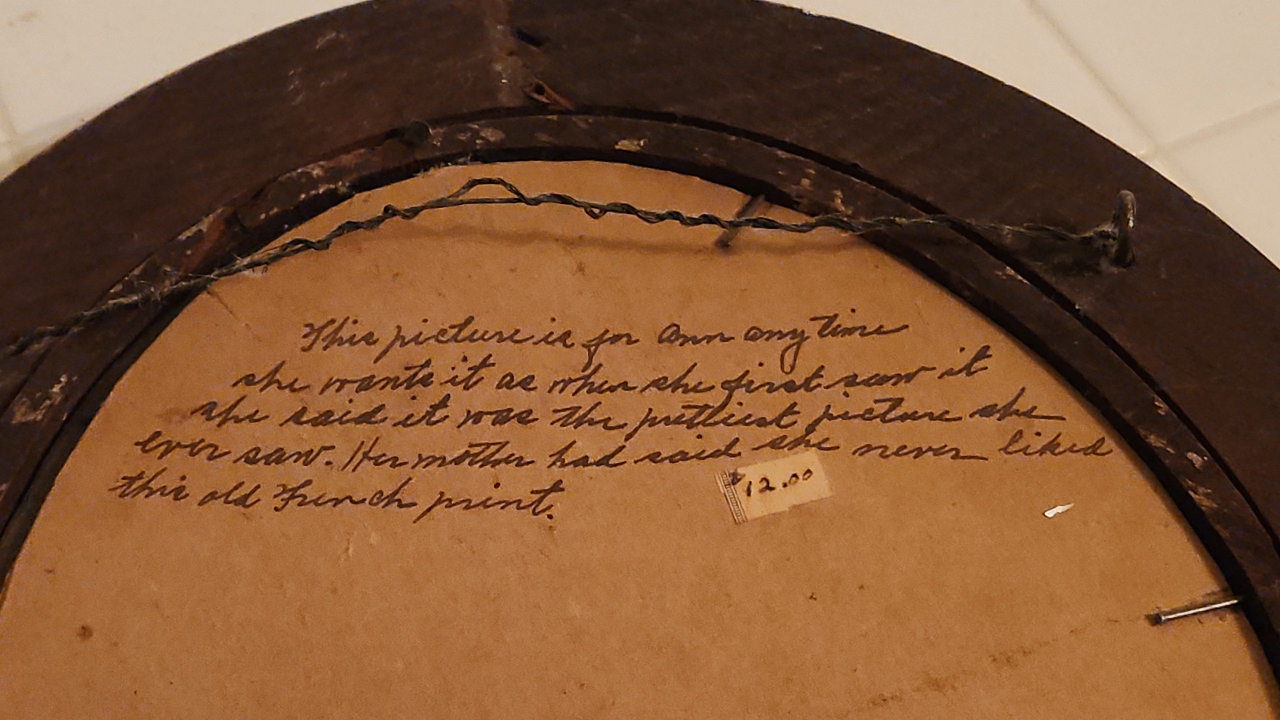 This picture is for Ann any time
she wants it as when she first saw it
she said it was the prettiest picture she
ever saw. Her mother had said she never liked
this old French print.
$12.00